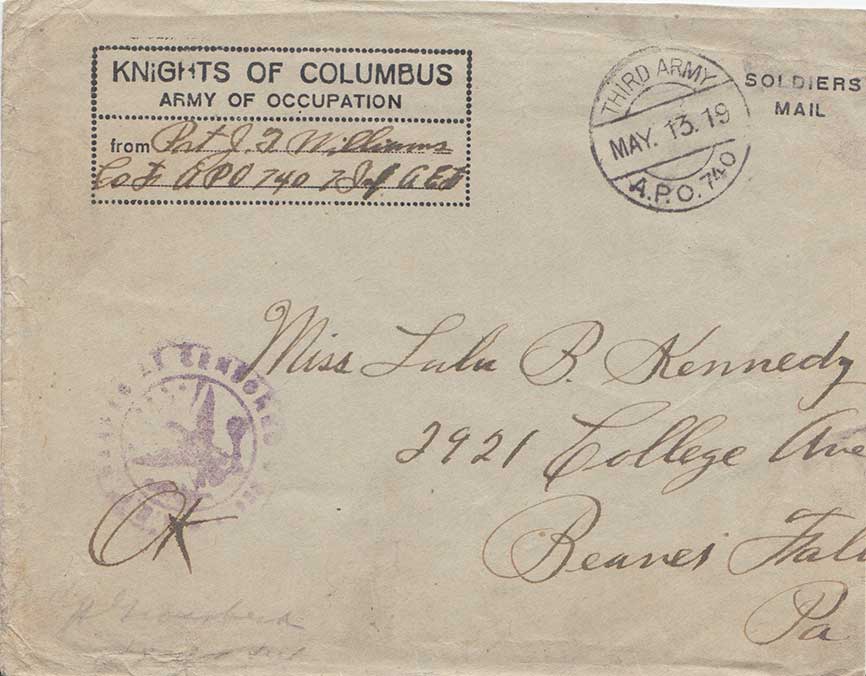 KNIGHTS OF COLUMBUS
ARMY OF OCCUPATION
from Pvt J. F Williams
Co F APO 740 7 Inf AEF
THIRD ARMY
MAY. 13. 19
A.P.O. 740
SOLDIERS
MAIL
Miss Lulu B. Kennedy
2921 College Ave
Beaver Fall
Pa
CENSORED
OK